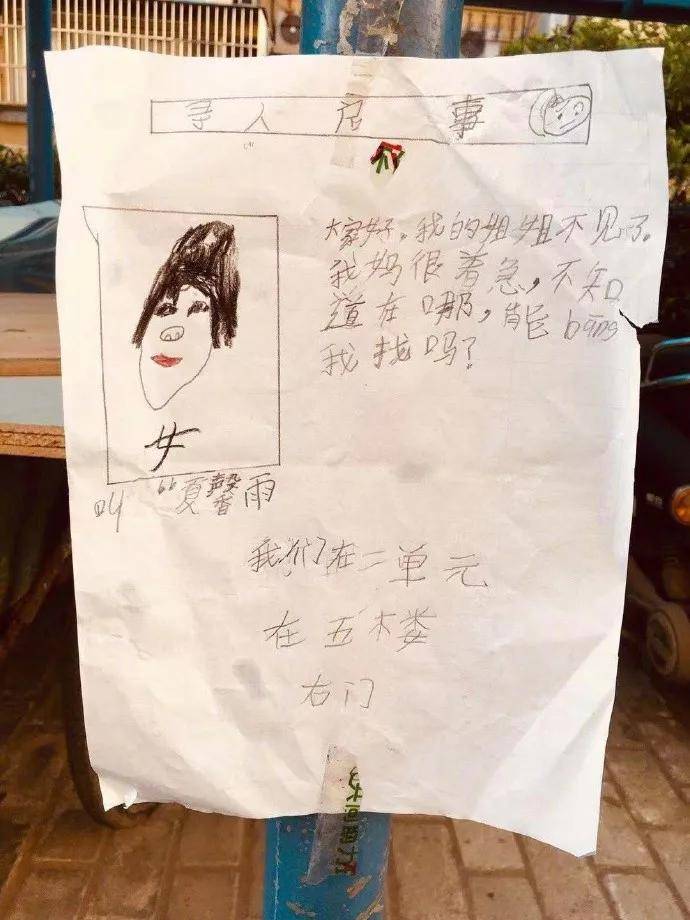 寻人启事
大家好。我的姐姐不见了。
我妈很着急，不知
道在哪，能bāng
我找吗？
女
叫“夏馨雨
我们在二单元
在五楼
右门